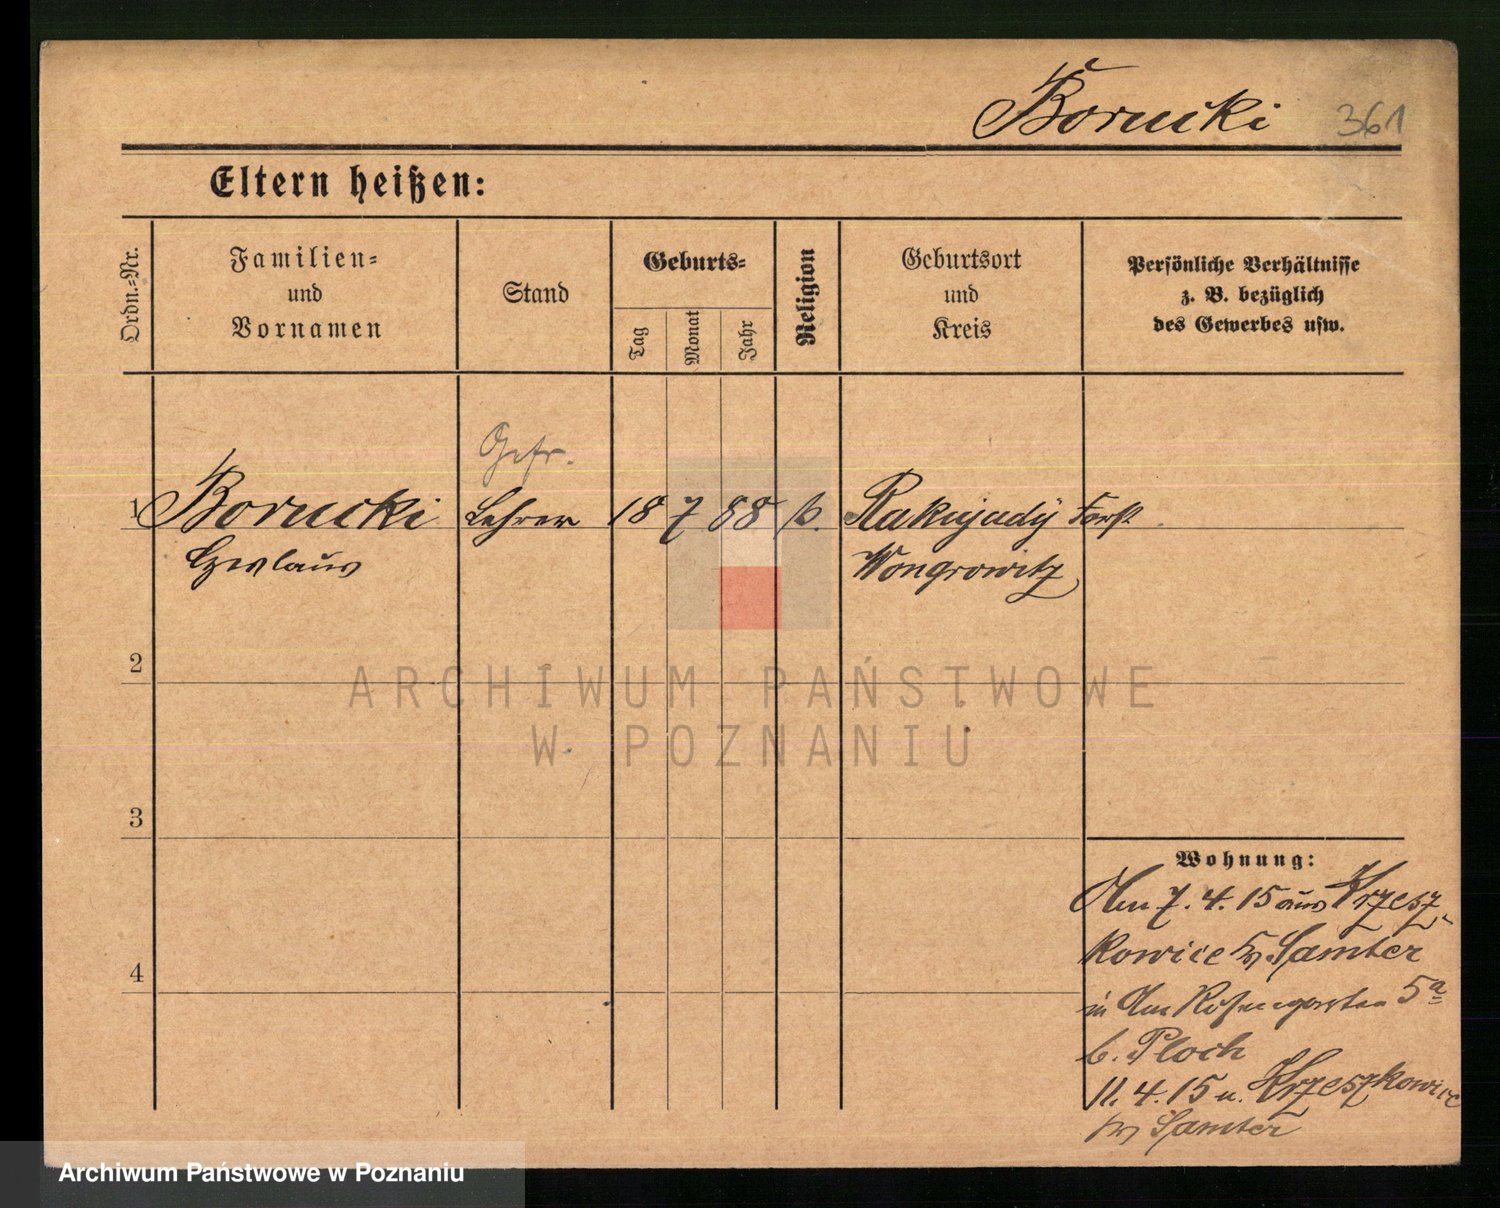 Borucki 361
Eltern heißen:
Ordn.-Nr.
Familien-
und
Vornamen
Stand
Geburts-
Tag
Monat
Jahr
Religion
Geburtsort
und
Kreis
Persönliche Verhältnisse
z. B. bezüglich
des Gewerbes usw.
Gefr.
1 Borucki Lehrer 18 7 88 k. Rakujady Forst
Czeslaus Wongrowitz
2
3
4
Wohnung:
Am 7. 4. 15 aus Krzesz-
kowice Samter
in Am Rosengarten 5a
b. Ploch
11. 4. 15 n. Krzeszkowice
Samter
ARCHIWUM PAŃSTWOWE
W POZNANIU
Archiwum Państwowe w Poznaniu